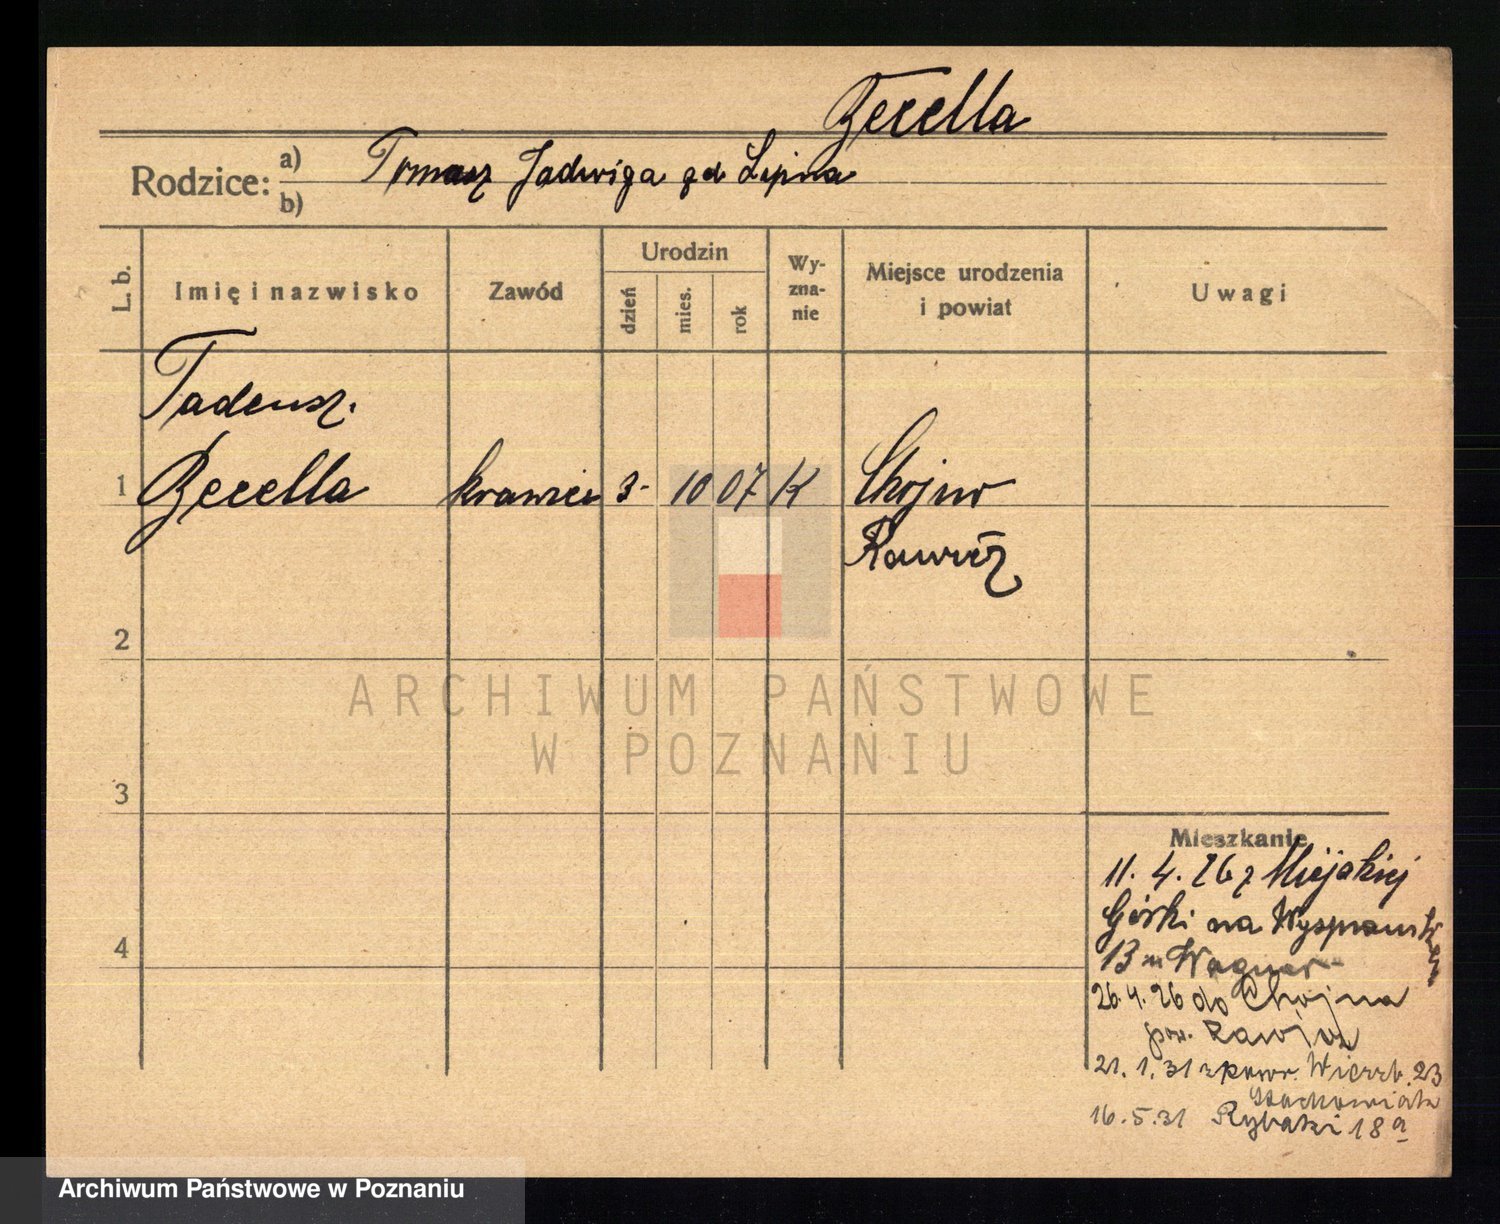 Zecella
Rodzice: a) b)
Tomasz Jadwiga zd Lipna
L. b.
Imię i nazwisko
Zawód
Urodzin
dzień
mies.
rok
Wy-
zna-
nie
Miejsce urodzenia
i powiat
Uwagi
Tadeusz
1 Zecella krawiec 3 10 07 K Chojno
Rawicz
2
3
4
Mieszkanie
11. 4. 26 z Miejskiej
Górki na Wyspiański
13 m Wagner
26.4.26 do Chojna
pow. Rawicz
21. 1. 31 z pow. Wierzb. 23
Stachowiak
16.5.31 Rybaki 18a
ARCHIWUM PAŃSTWOWE
W POZNANIU
Archiwum Państwowe w Poznaniu